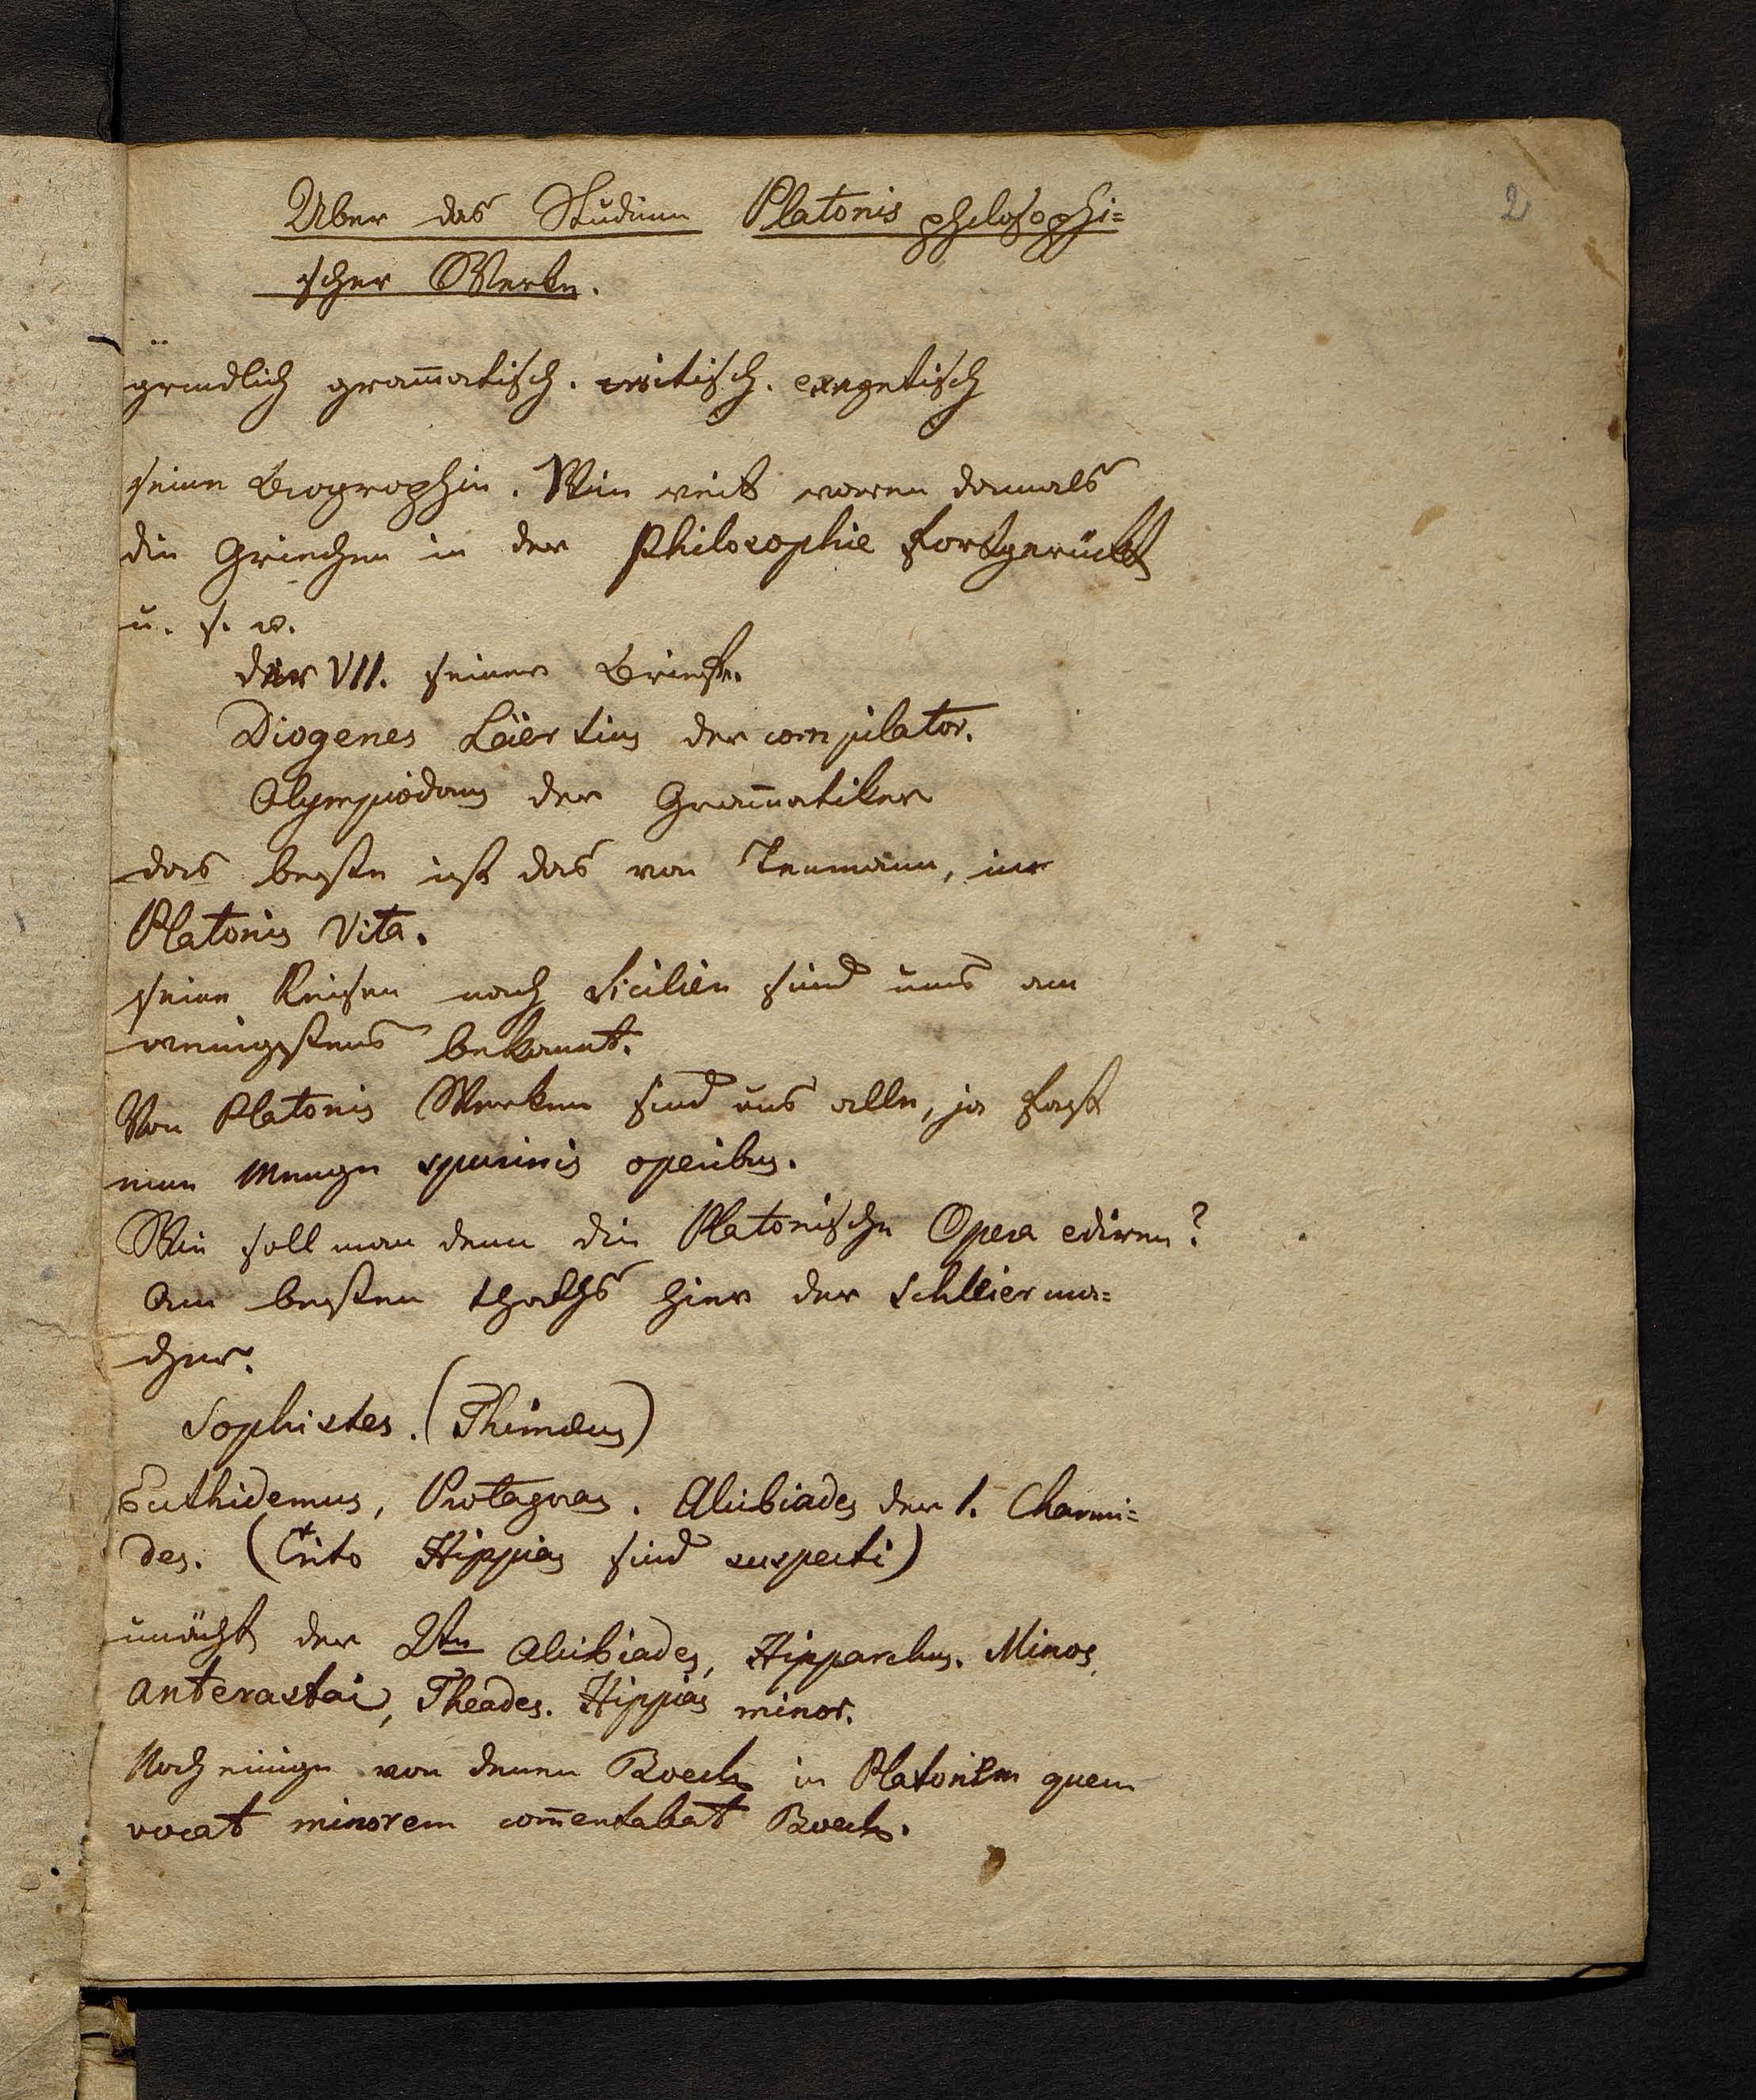 2
Uber das Studium Platonis philosophi=
scher Werke.
gründlich gram̅atisch. critisch. exegetisch
seine Biographie. Wie weit waren damals
die Griechen in der Philosophie fortgerückt
u. s. w.
der VII. seiner Briefe.
Diogenes Läertius der compilator.
Olympiodorus der Gram̅atiker
das beste ist das von Tenmann, in
Platonis Vita.
seine Reisen nach Sicilien sind uns am
wenigstens bekannt.
Von Platonis Werken sind uns alle, ja fast
eine Menge spuriis operibus.
Wie soll man denn die Platonische Opera ediren?
Am besten thaths hier der Schleierma=
cher.
Sophistes. (Thimæus)
Euthidemus, Protagoras. Alcibiades der 1. Charmi=
des. (Crito Hippias sind suspecti)
unächt der 2te Alcibiades, Hipparchus. Minos,
Anterastai, Theades. Hippias minor.
Noch einige von denen Boeck in Platonem quem
vocat minorem com̅entabat Boeck.